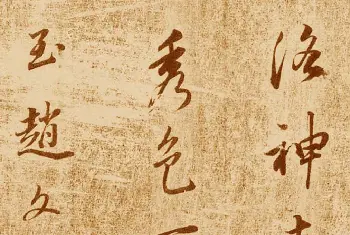 洛神
秀色
玉趙文